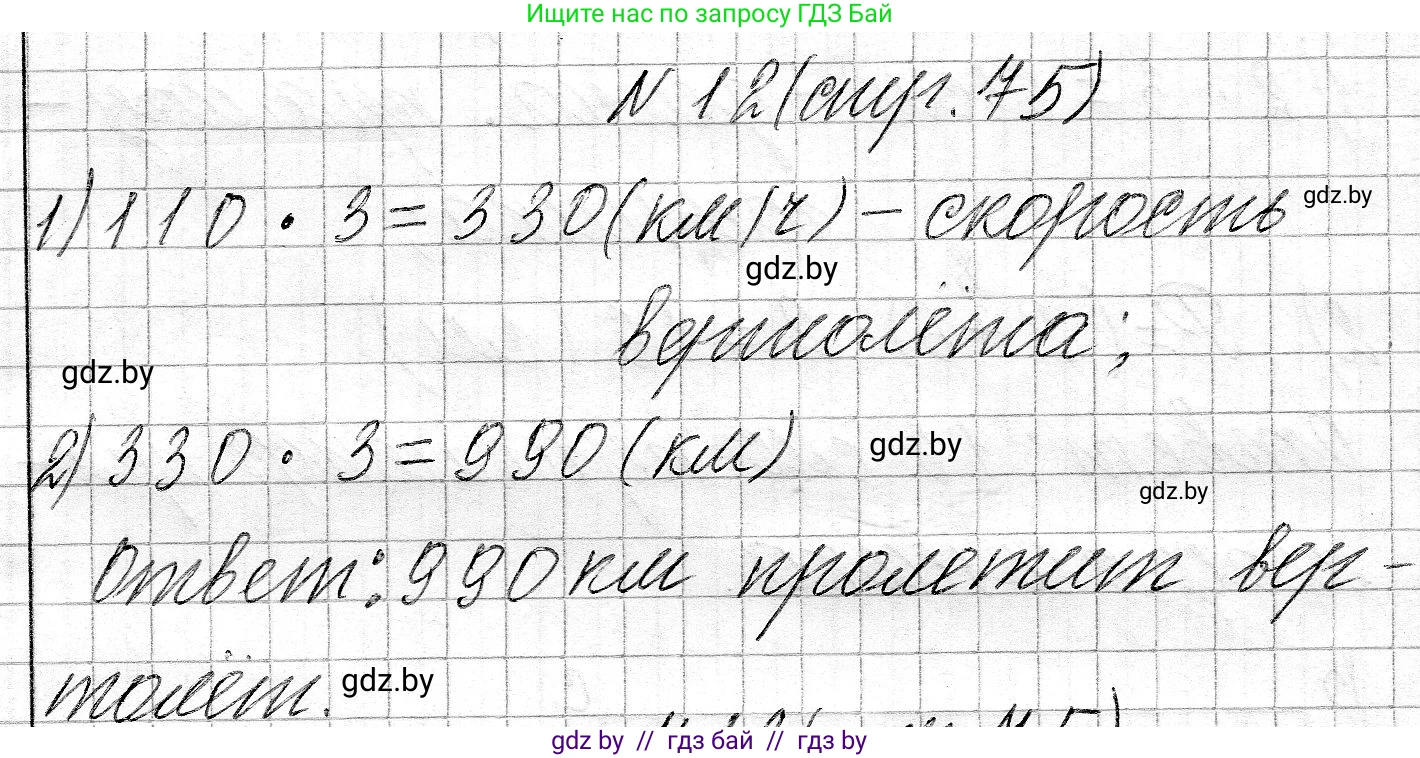 Ищите нас по запросу ГДЗ Бай
N 12 (стр. 75)
1) 110 · 3 = 330 (км/ч) – скорость gdz.by
gdz.by
вертолёта;
gdz.by
2) 330 · 3 = 990 (км) gdz.by
gdz.by
Ответ: 990 км пролетит вер-
толёт. gdz.by
gdz by // гдз бай // гдз by